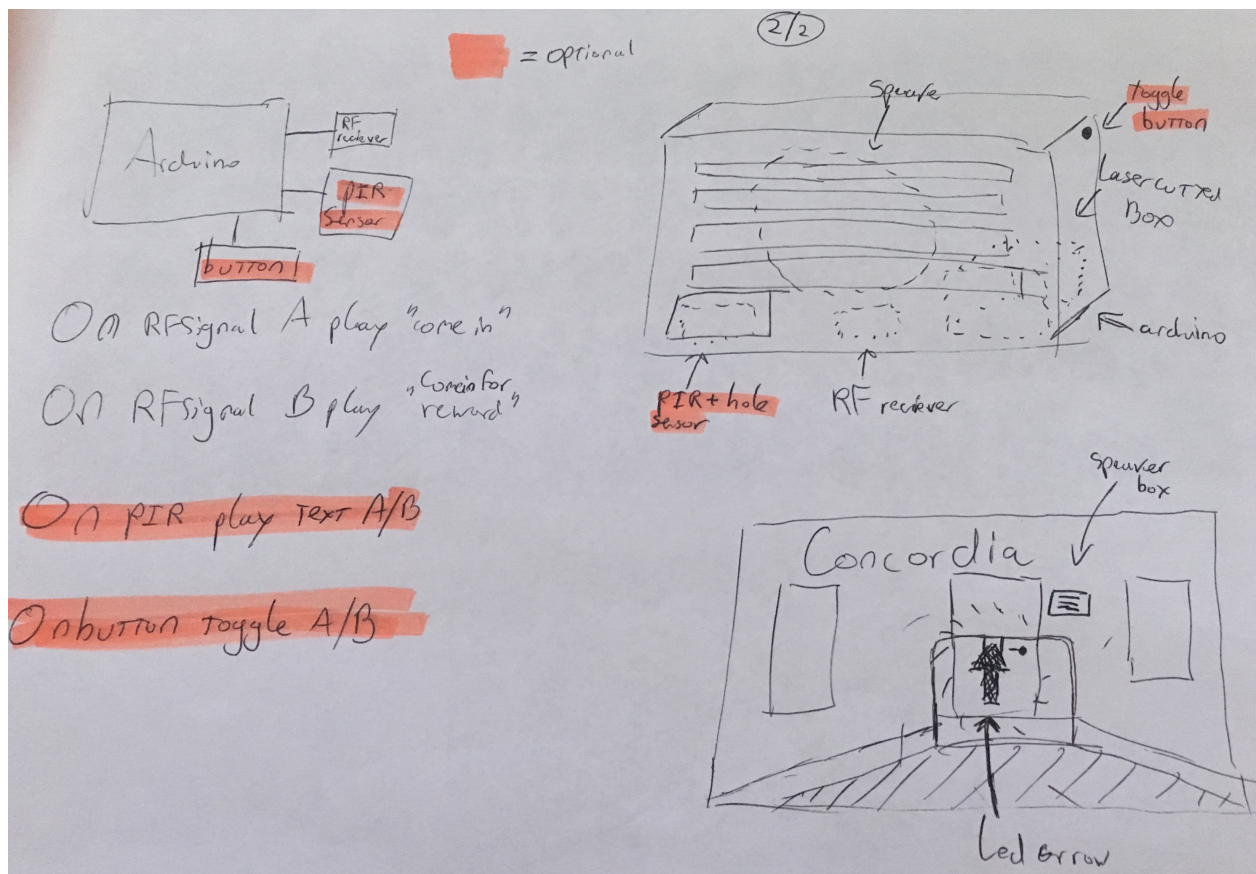 2/2
= optional
Arduino
RF
reciever
PIR
Sensor
button
On RFSignal A play "come in"
On RFsignal B play "Comein for
reward"
On PIR play TEXT A/B
On button toggle A/B
toggle
button
Lasercutted
Box
arduino
PIR + hole
sensor
RF reciever
speaker
box
Concordia
Led arrow